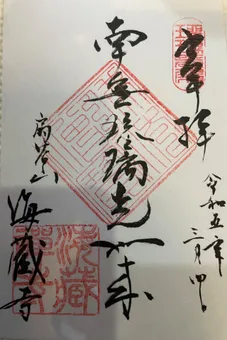 奉拝
令和五年
三月四日
南無瑠璃光如来
扇谷山
海蔵寺
海蔵